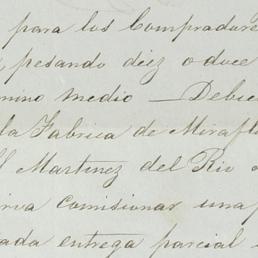 para los Compradore
pesando diez o doce
mino medio — Debie
la Fabrica de Mirafl
Martinez del Rio
rva comisionar una
ada entrega parcial